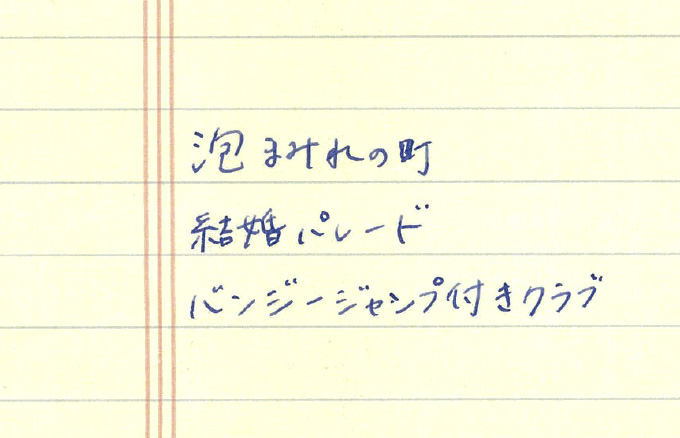 泡まみれの町
結婚パレード
バンジージャンプ付きクラブ